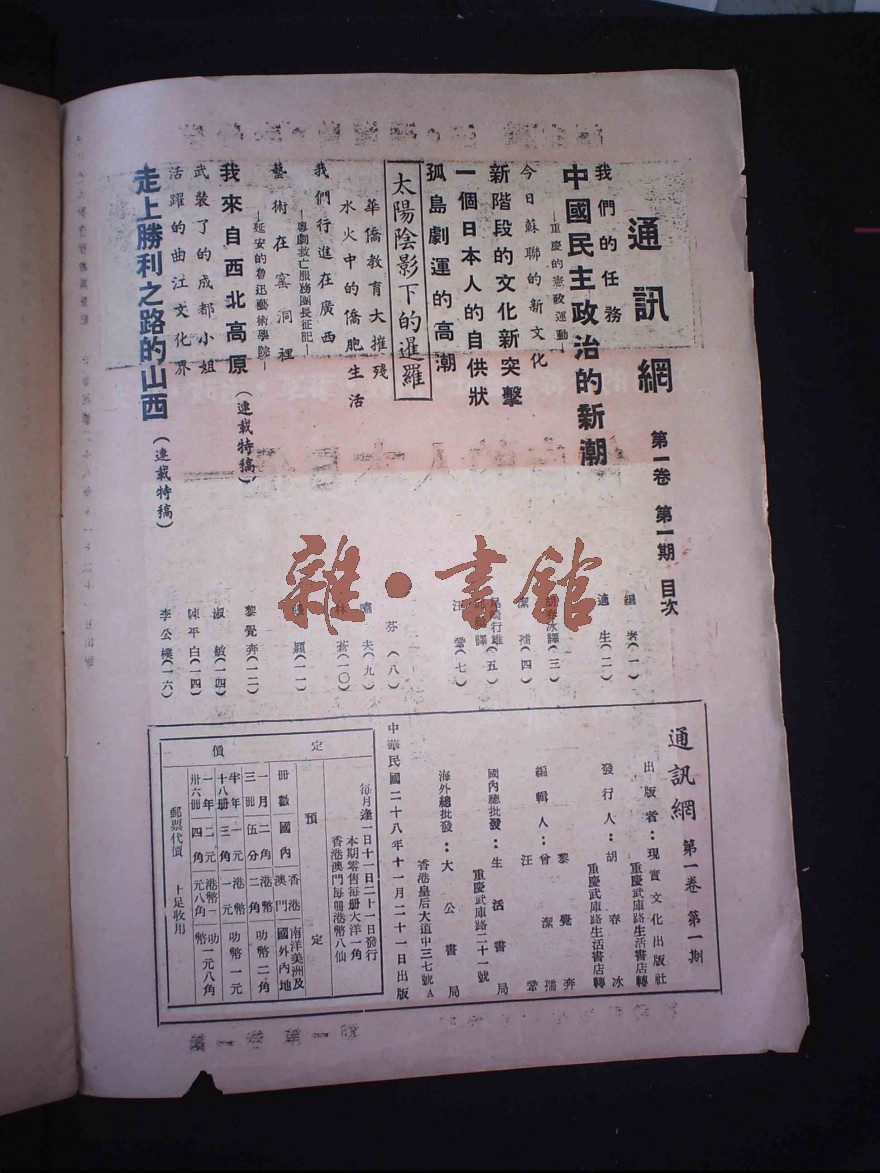 通訊網 第一卷 第一期 目次
我們的任務
編者(一)
中國民主政治的新潮
—重慶的憲政運動—
適生(二)
今日蘇聯的新文化
胡春冰譯(三)
新階段的文化新突擊
潔孺(四)
一個日本人的自供狀
尾崎行雄
譯(五)
孤島劇運的高潮
汪鞏(七)
太陽陰影下的暹羅
芬(八)
華僑教育大摧殘
嘯夫(九)
水火中的僑胞生活
林蒼(一〇)
我們行進在廣西
—粵劇救亡服務團長征記—
穎(一一)
藝術在窰洞裡
—延安的魯迅藝術學院—
黎覺奔(一二)
我來自西北高原(連載特稿)
武裝了的成都小姐
淑敏(一四)
活躍的曲江文化界
陳平白(一四)
走上勝利之路的山西(連載特稿)
李公樸(一六)
雜·書館
通訊網 第一卷 第一期
出版者:現實文化出版社
重慶武庫路生活書店轉
發行人:胡春冰
重慶武庫路生活書店轉
編輯人:黎覺奔
曾潔孺
汪鞏
國內總批發:生活書局
重慶武庫路二十一號
海外總批發:大公書局
香港皇后大道中三七號A
中華民國二十八年十一月二十一日出版
每月逢一日十一日二十一日發行
本期零售每册大洋一角
香港澳門每册港幣八仙
定價
預定
册數 國內 香港澳門 南洋美洲及國外內地
一月三册 二角伍分 港幣二角 叻幣二角
半年十八册 一元三角 港幣一元 叻幣一元
一年卅六册 二元四角 港幣一元八角 叻幣一元八角
郵票代價 十足收用
第一卷 第一期